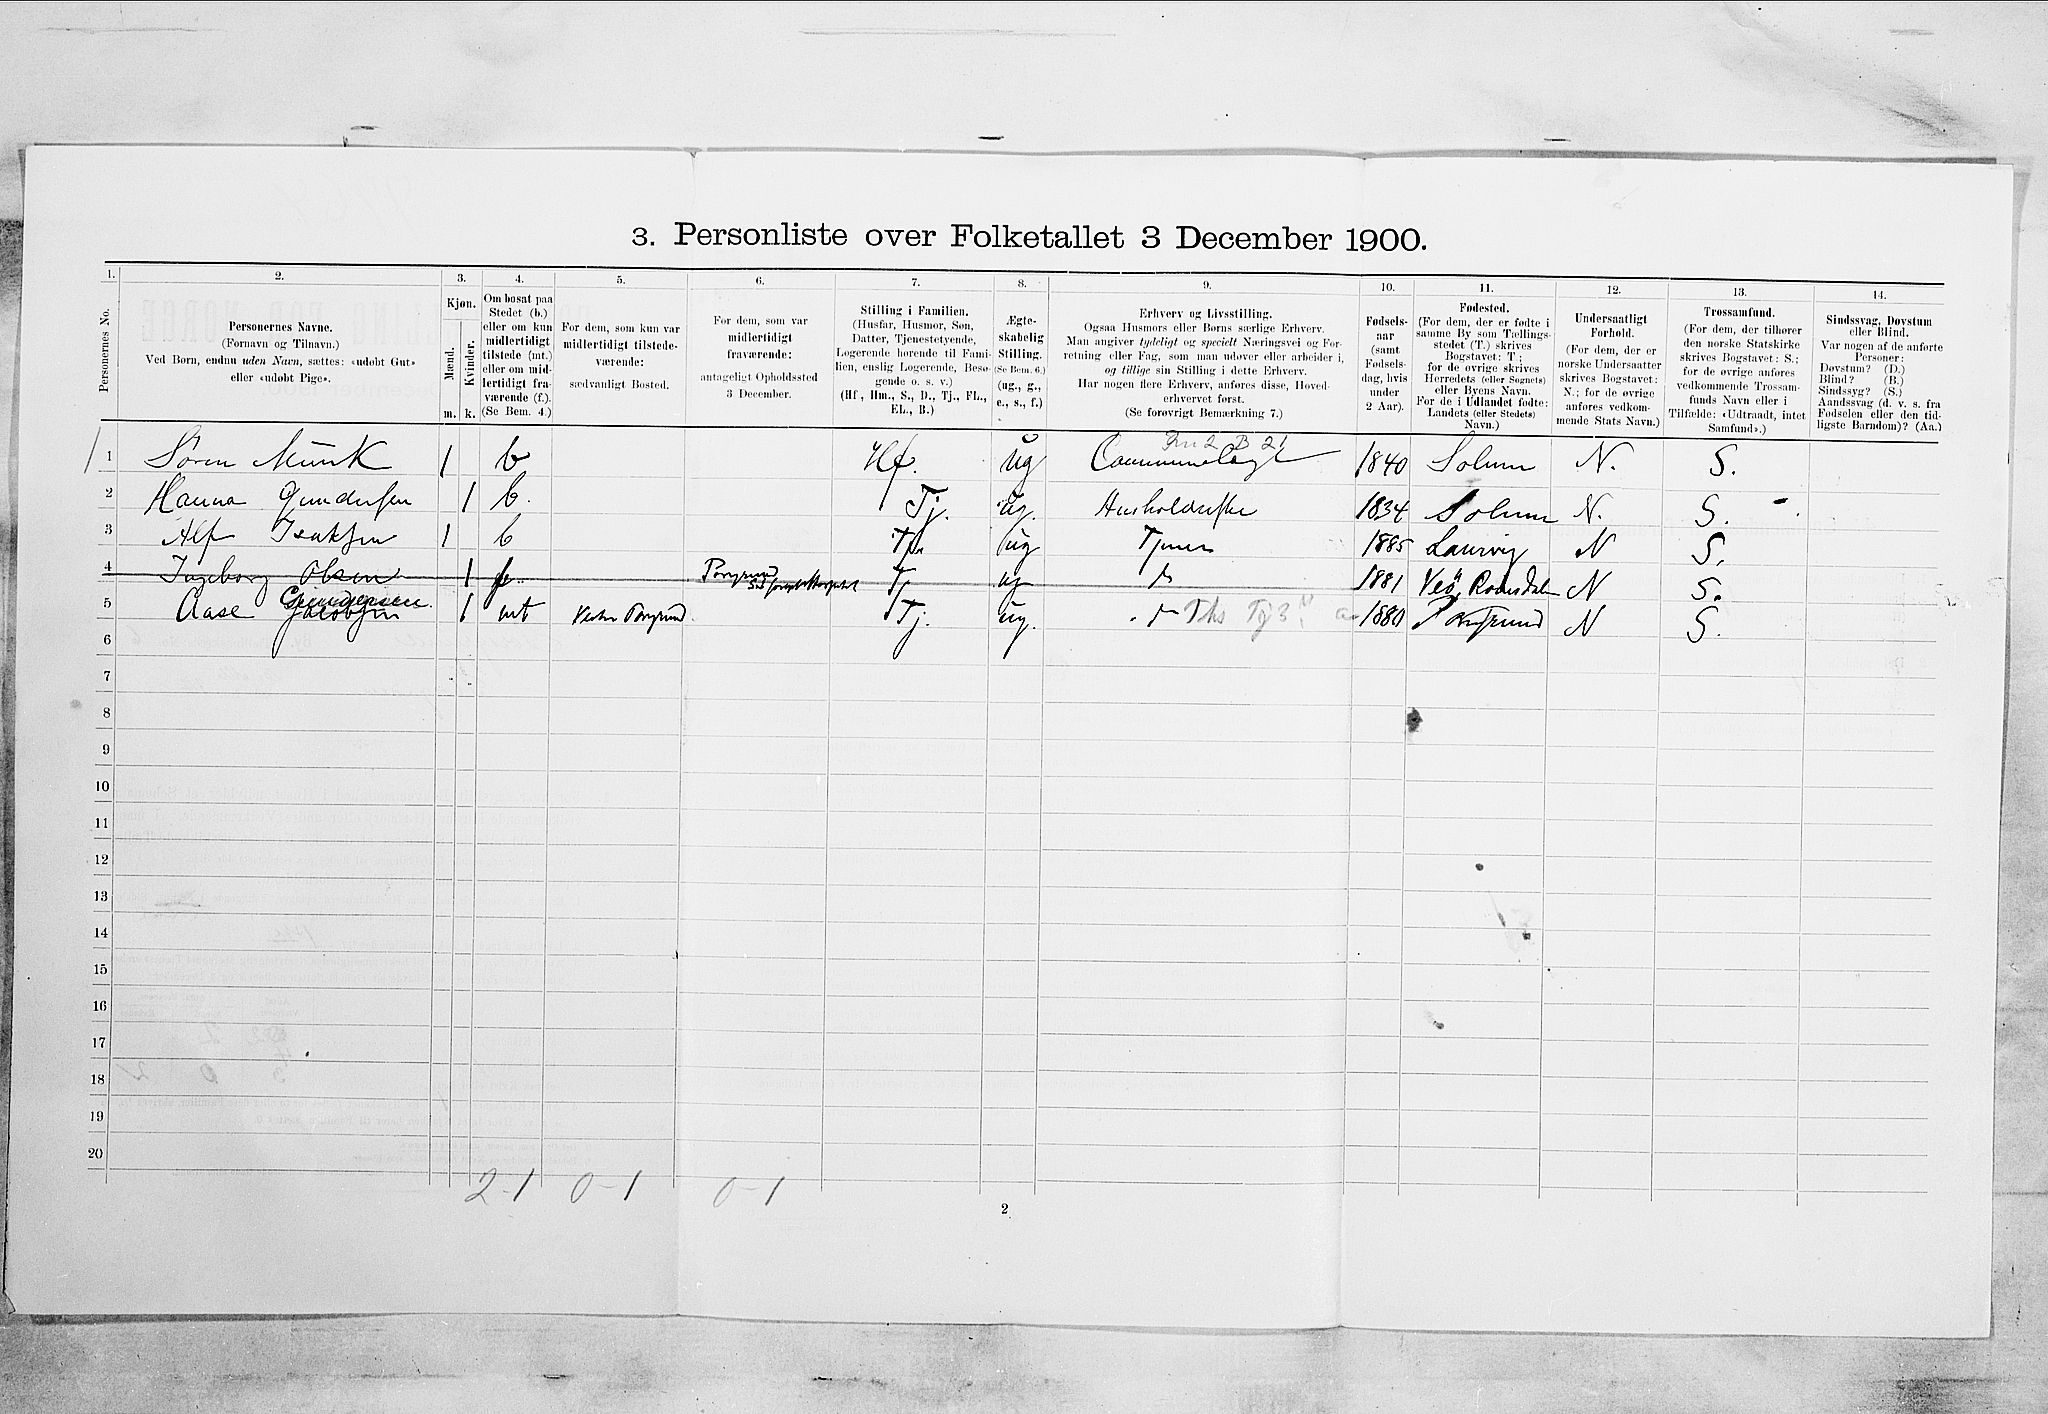 3. Personliste over Folketallet 3 December 1900.
1. 2. 3. 4. 5. 6. 7. 8. 9. 10. 11. 12. 13. 14.
Personernes No.
Personernes Navne.
(Fornavn og Tilnavn.)
Ved Børn, endnu uden Navn, sættes: «udøbt Gut»
eller «udøbt Pige».
Kjøn.
Mænd.
Kvinder.
m. k.
Om bosat paa
Stedet (b.)
eller om kun
midlertidigt
tilstede (mt.)
eller om mid-
lertidigt fra-
værende (f.).
(Se Bem. 4.)
For dem, som kun var
midlertidigt tilstede-
værende:
sædvanligt Bosted.
For dem, som var
midlertidigt
fraværende:
antageligt Opholdssted
3 December.
Stilling i Familien.
(Husfar, Husmor, Søn,
Datter, Tjenestetyende,
Logerende hørende til Fami-
lien, enslig Logerende, Besø-
gende o. s. v.)
(Hf, Hm., S., D., Tj., FL.,
EL., B.)
Ægte-
skabelig
Stilling.
(Se Bem. 6.)
(ug., g.,
e., s., f.)
Erhverv og Livsstilling.
Ogsaa Husmors eller Børns særlige Erhverv.
Man angiver tydeligt og specielt Næringsvei og For-
retning eller Fag, som man udøver eller arbeider i,
og tillige sin Stilling i dette Erhverv.
Har nogen flere Erhverv, anføres disse, Hoved-
erhvervet først.
(Se forøvrigt Bemærkning 7.)
Fødsels-
aar
(samt
Fødsels-
dag, hvis
under
2 Aar).
Fødested.
(For dem, der er fødte i
samme By som Tællings-
stedet (T.) skrives
Bogstavet: T.;
for de øvrige skrives
Herredets (eller Sognets)
eller Byens Navn.
For de i Udlandet fødte:
Landets (eller Stedets)
Navn.)
Undersaatligt
Forhold.
(For dem, der er
norske Undersaatter
skrives Bogstavet:
N.; for de øvrige
anføres vedkom-
mende Stats Navn.)
Trossamfund.
(For dem, der tilhører
den norske Statskirke
skrives Bogstavet: S.;
for de øvrige anføres
vedkommende Trossam-
funds Navn eller i
Tilfælde: «Udtraadt, intet
Samfund».)
Sindssvag, Døvstum
eller Blind.
Var nogen af de anførte
Personer:
Døvstum? (D.)
Blind? (B.)
Sindssyg? (S.)
Aandssvag (d. v. s. fra
Fødselen eller den tid-
ligste Barndom)? (Aa.)
1 Søren Munk 1 b Hf. ug 1840 Solum N. S.
2 Hanna Gundersen 1 b. Tj. ug. 1834 Solum N. S.
3 Alf Isaksen 1 b Tj. ug Tjener 1885 Laurvig N S.
4 Ingeborg Olsen 1 f. Porsgrund Tj ug 1881 Veø, Romsdalen N S.
Gundersen
5 Aase Jacobsen 1 mt Vestre Porsgrund Tj. ug. 1880 Porsgrund N S.
6
7
8
9
10
11
12
13
14
15
16
17
18
19
20
2-1 0-1 0-1
2